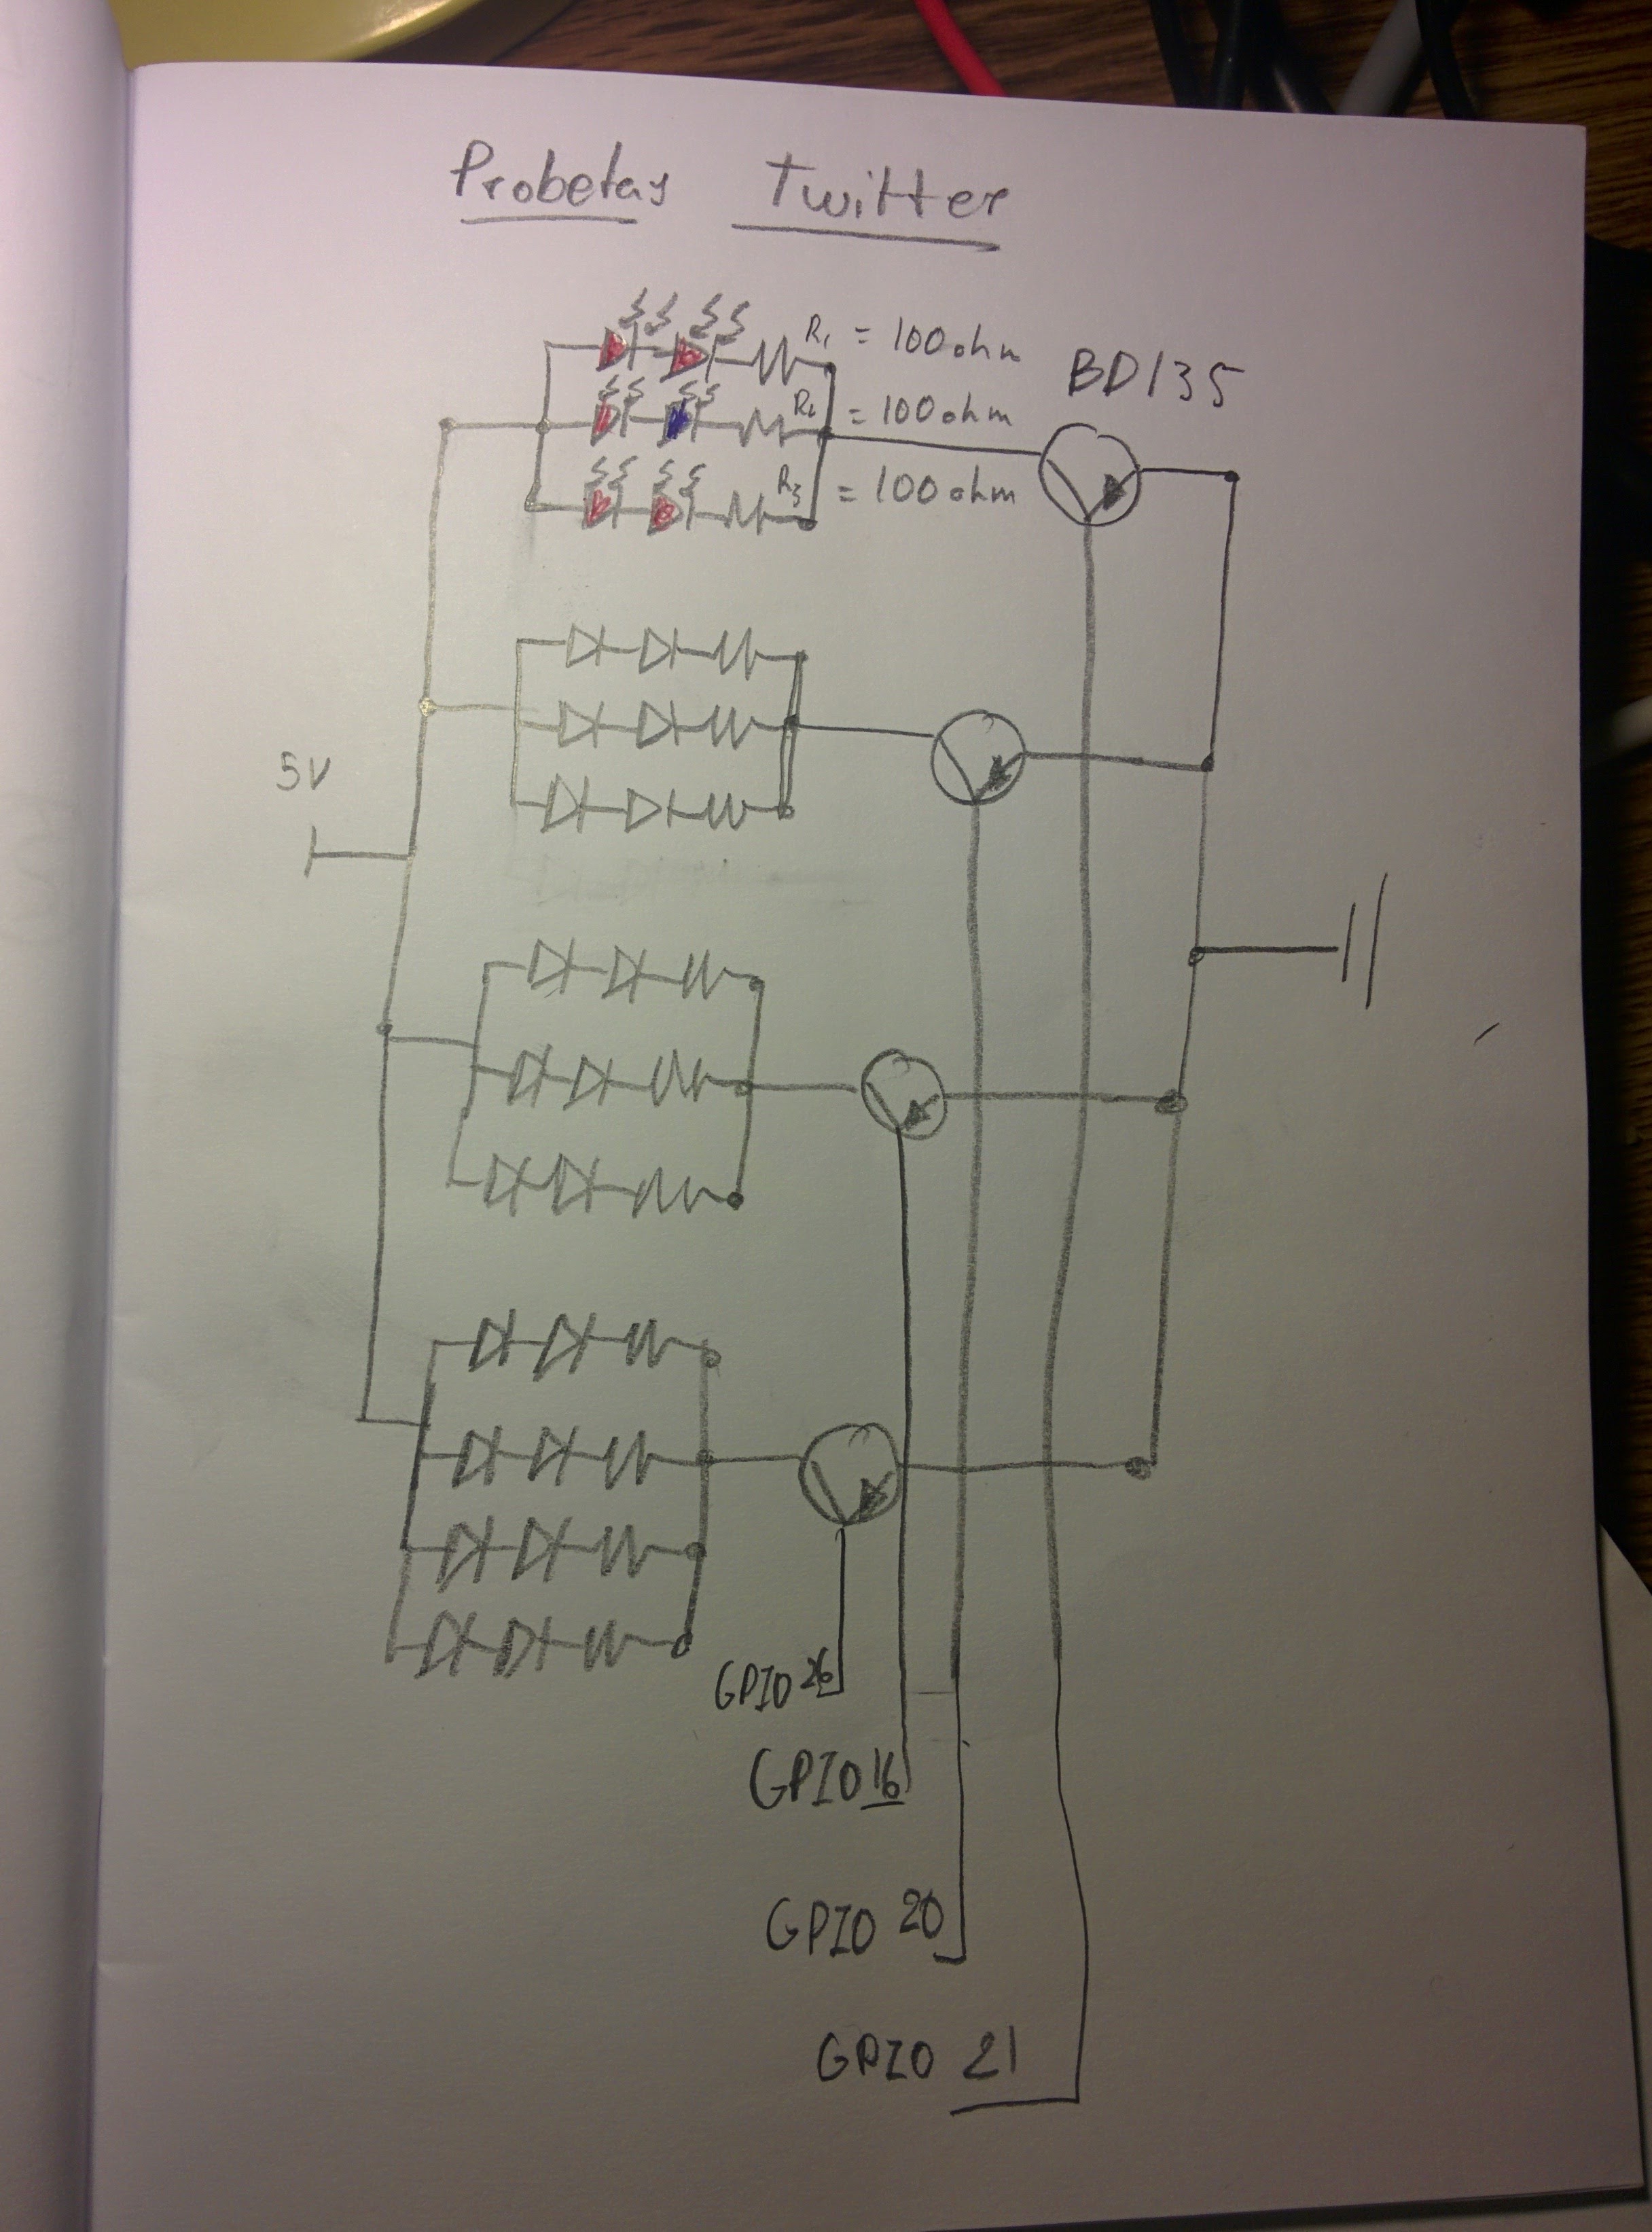 Probetas Twitter
R1 = 100 ohm
BD135
R2 = 100 ohm
R3 = 100 ohm
5V
GPIO 26
GPIO 16
GPIO 20
GPIO 21